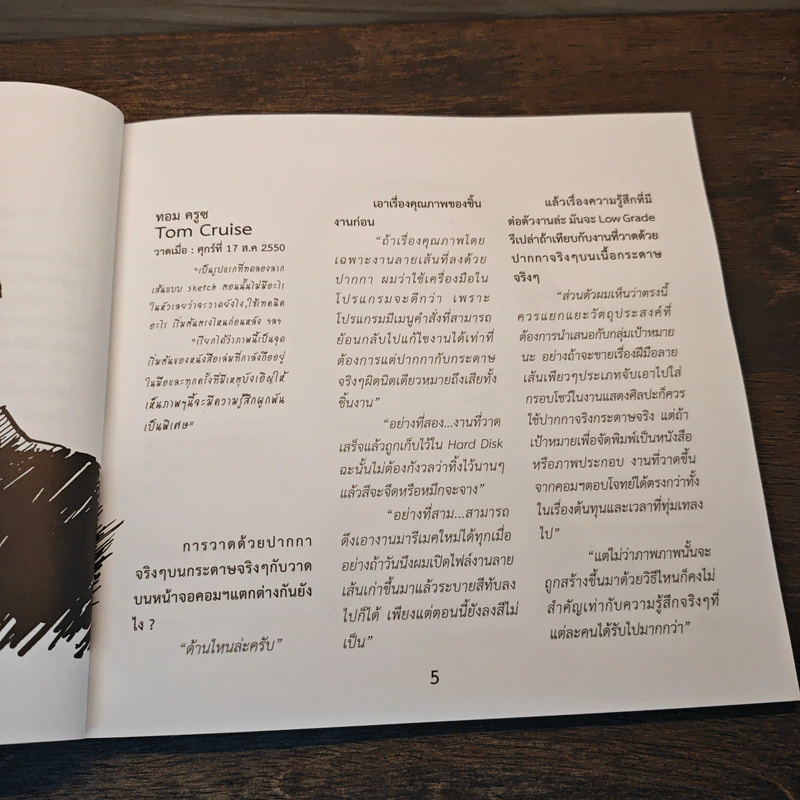 ทอม ครูซ
Tom Cruise
วาดเมื่อ : ศุกร์ที่ 17 ส.ค 2550
"เป็นรูปแรกที่ทดลองลาก
เส้นแบบ sketch ตอนนั้นไม่มีอะไร
ในหัวเลยว่าจะวาดยังไง,ใช้เทคนิค
อะไร เริ่มต้นตรงไหนก่อนหลัง ฯลฯ
"เรียกได้ว่าภาพนี้เป็นจุด
เริ่มต้นของหนังสือเล่มที่กำลังถืออยู่
ในมือและทุกครั้งที่มีเหตุบังเอิญให้
เห็นภาพๆนี้จะมีความรู้สึกผูกพัน
เป็นพิเศษ"
การวาดด้วยปากกา
จริงๆบนกระดาษจริงๆกับวาด
บนหน้าจอคอมฯแตกต่างกันยัง
ไง ?
"ด้านไหนล่ะครับ"
เอาเรื่องคุณภาพของชิ้น
งานก่อน
"ถ้าเรื่องคุณภาพโดย
เฉพาะงานลายเส้นที่ลงด้วย
ปากกา ผมว่าใช้เครื่องมือใน
โปรแกรมจะดีกว่า เพราะ
โปรแกรมมีเมนูคำสั่งที่สามารถ
ย้อนกลับไปแก้ไขงานได้เท่าที่
ต้องการแต่ปากกากับกระดาษ
จริงๆผิดนิดเดียวหมายถึงเสียทั้ง
ชิ้นงาน"
"อย่างที่สอง...งานที่วาด
เสร็จแล้วถูกเก็บไว้ใน Hard Disk
ฉะนั้นไม่ต้องกังวลว่าทิ้งไว้นานๆ
แล้วสีจะจืดหรือหมึกจะจาง"
"อย่างที่สาม...สามารถ
ดึงเอางานมารีเมคใหม่ได้ทุกเมื่อ
อย่างถ้าวันนึงผมเปิดไฟล์งานลาย
เส้นเก่าขึ้นมาแล้วระบายสีทับลง
ไปก็ได้ เพียงแต่ตอนนี้ยังลงสีไม่
เป็น"
แล้วเรื่องความรู้สึกที่มี
ต่อตัวงานล่ะ มันจะ Low Grade
รึเปล่าถ้าเทียบกับงานที่วาดด้วย
ปากกาจริงๆบนเนื้อกระดาษ
จริงๆ
"ส่วนตัวผมเห็นว่าตรงนี้
ควรแยกแยะวัตถุประสงค์ที่
ต้องการนำเสนอกับกลุ่มเป้าหมาย
นะ อย่างถ้าจะขายเรื่องฝีมือลาย
เส้นเพียวๆประเภทจับเอาไปใส่
กรอบโชว์ในงานแสดงศิลปะก็ควร
ใช้ปากกาจริงกระดาษจริง แต่ถ้า
เป้าหมายเพื่อจัดพิมพ์เป็นหนังสือ
หรือภาพประกอบ งานที่วาดขึ้น
จากคอมฯตอบโจทย์ได้ตรงกว่าทั้ง
ในเรื่องต้นทุนและเวลาที่ทุ่มเทลง
ไป"
"แต่ไม่ว่าภาพภาพนั้นจะ
ถูกสร้างขึ้นมาด้วยวิธีไหนก็คงไม่
สำคัญเท่ากับความรู้สึกจริงๆที่
แต่ละคนได้รับไปมากกว่า"
5